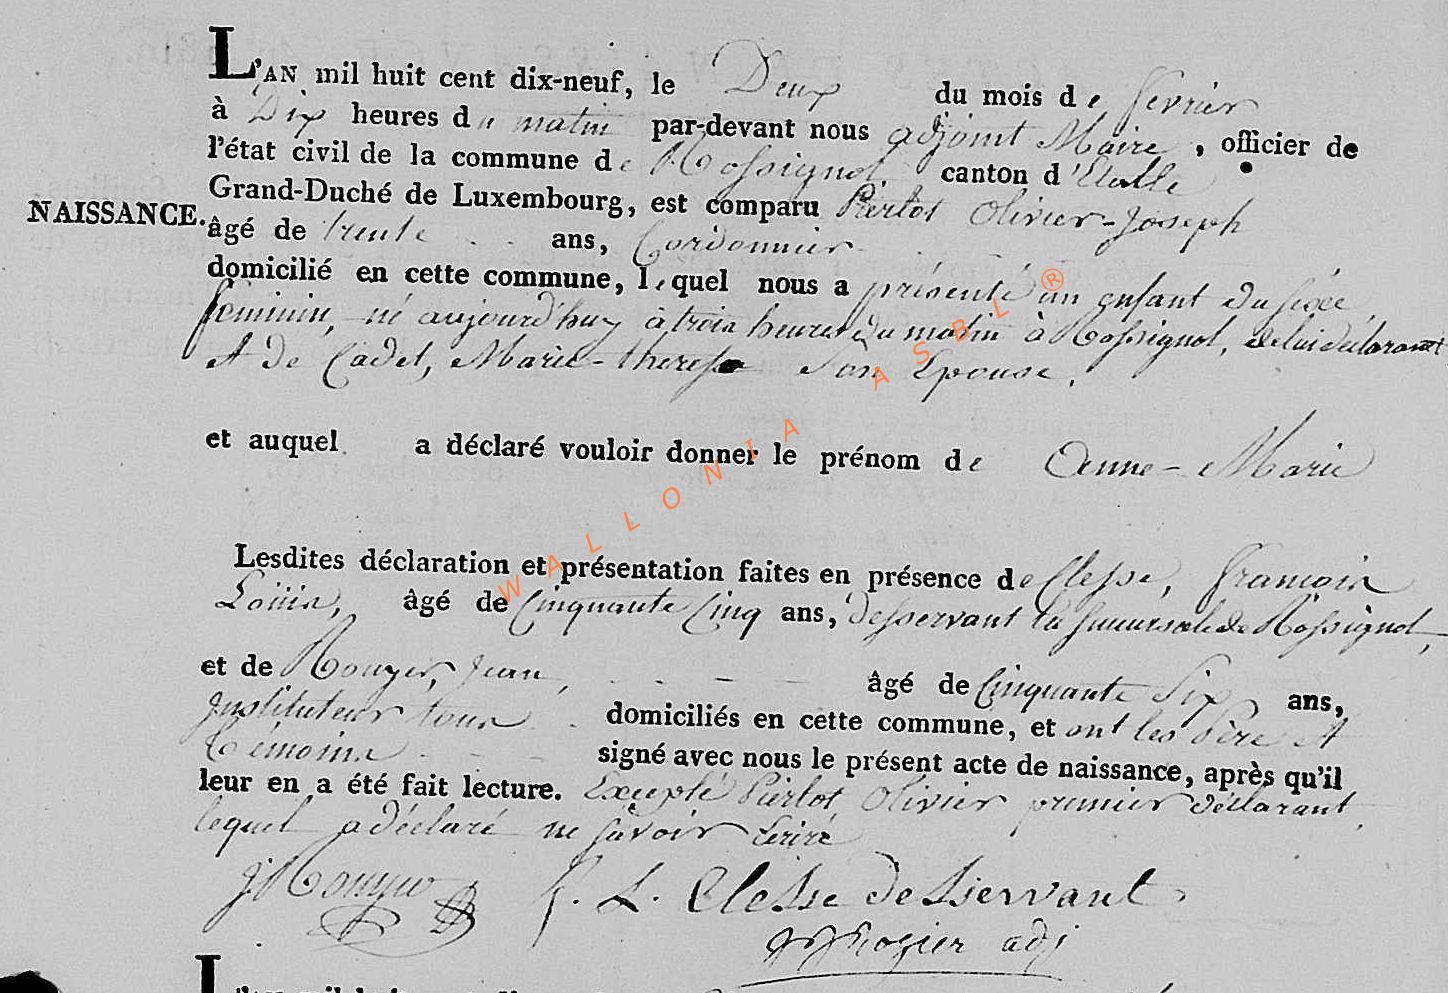 L'AN mil huit cent dix-neuf, le Deux du mois de fevrier
à Dix heures du matin par-devant nous adjoint Maire, officier de
l'état civil de la commune de Rossignol canton d'Etalle
Grand-Duché de Luxembourg, est comparu Pierlot Olivier-Joseph
NAISSANCE. âgé de trente ans, Cordonnier
domicilié en cette commune, lequel nous a présenté un enfant du sexe
feminin, né aujourd'huy à trois heures du matin à Rossignol, de lui déclarant
et de Cadet, Marie-therese son Epouse,
et auquel a déclaré vouloir donner le prénom de Anne-Marie
Lesdites déclaration et présentation faites en présence de Clesse, francois
Louis, âgé de Cinquante Cinq ans, desservant la succursale de Rossignol,
et de Rouyer, Jean, âgé de Cinquante Six ans,
Instituteur tous domiciliés en cette commune, et ont les Père et
témoins signé avec nous le présent acte de naissance, après qu'il
leur en a été fait lecture. Excepté Pierlot Olivier premier déclarant,
lequel a déclaré ne savoir Ecrire
J Rouyer F. L. Clesse desservant
Rozier adj
L'AN mil huit
WALLONIA ASBL ®